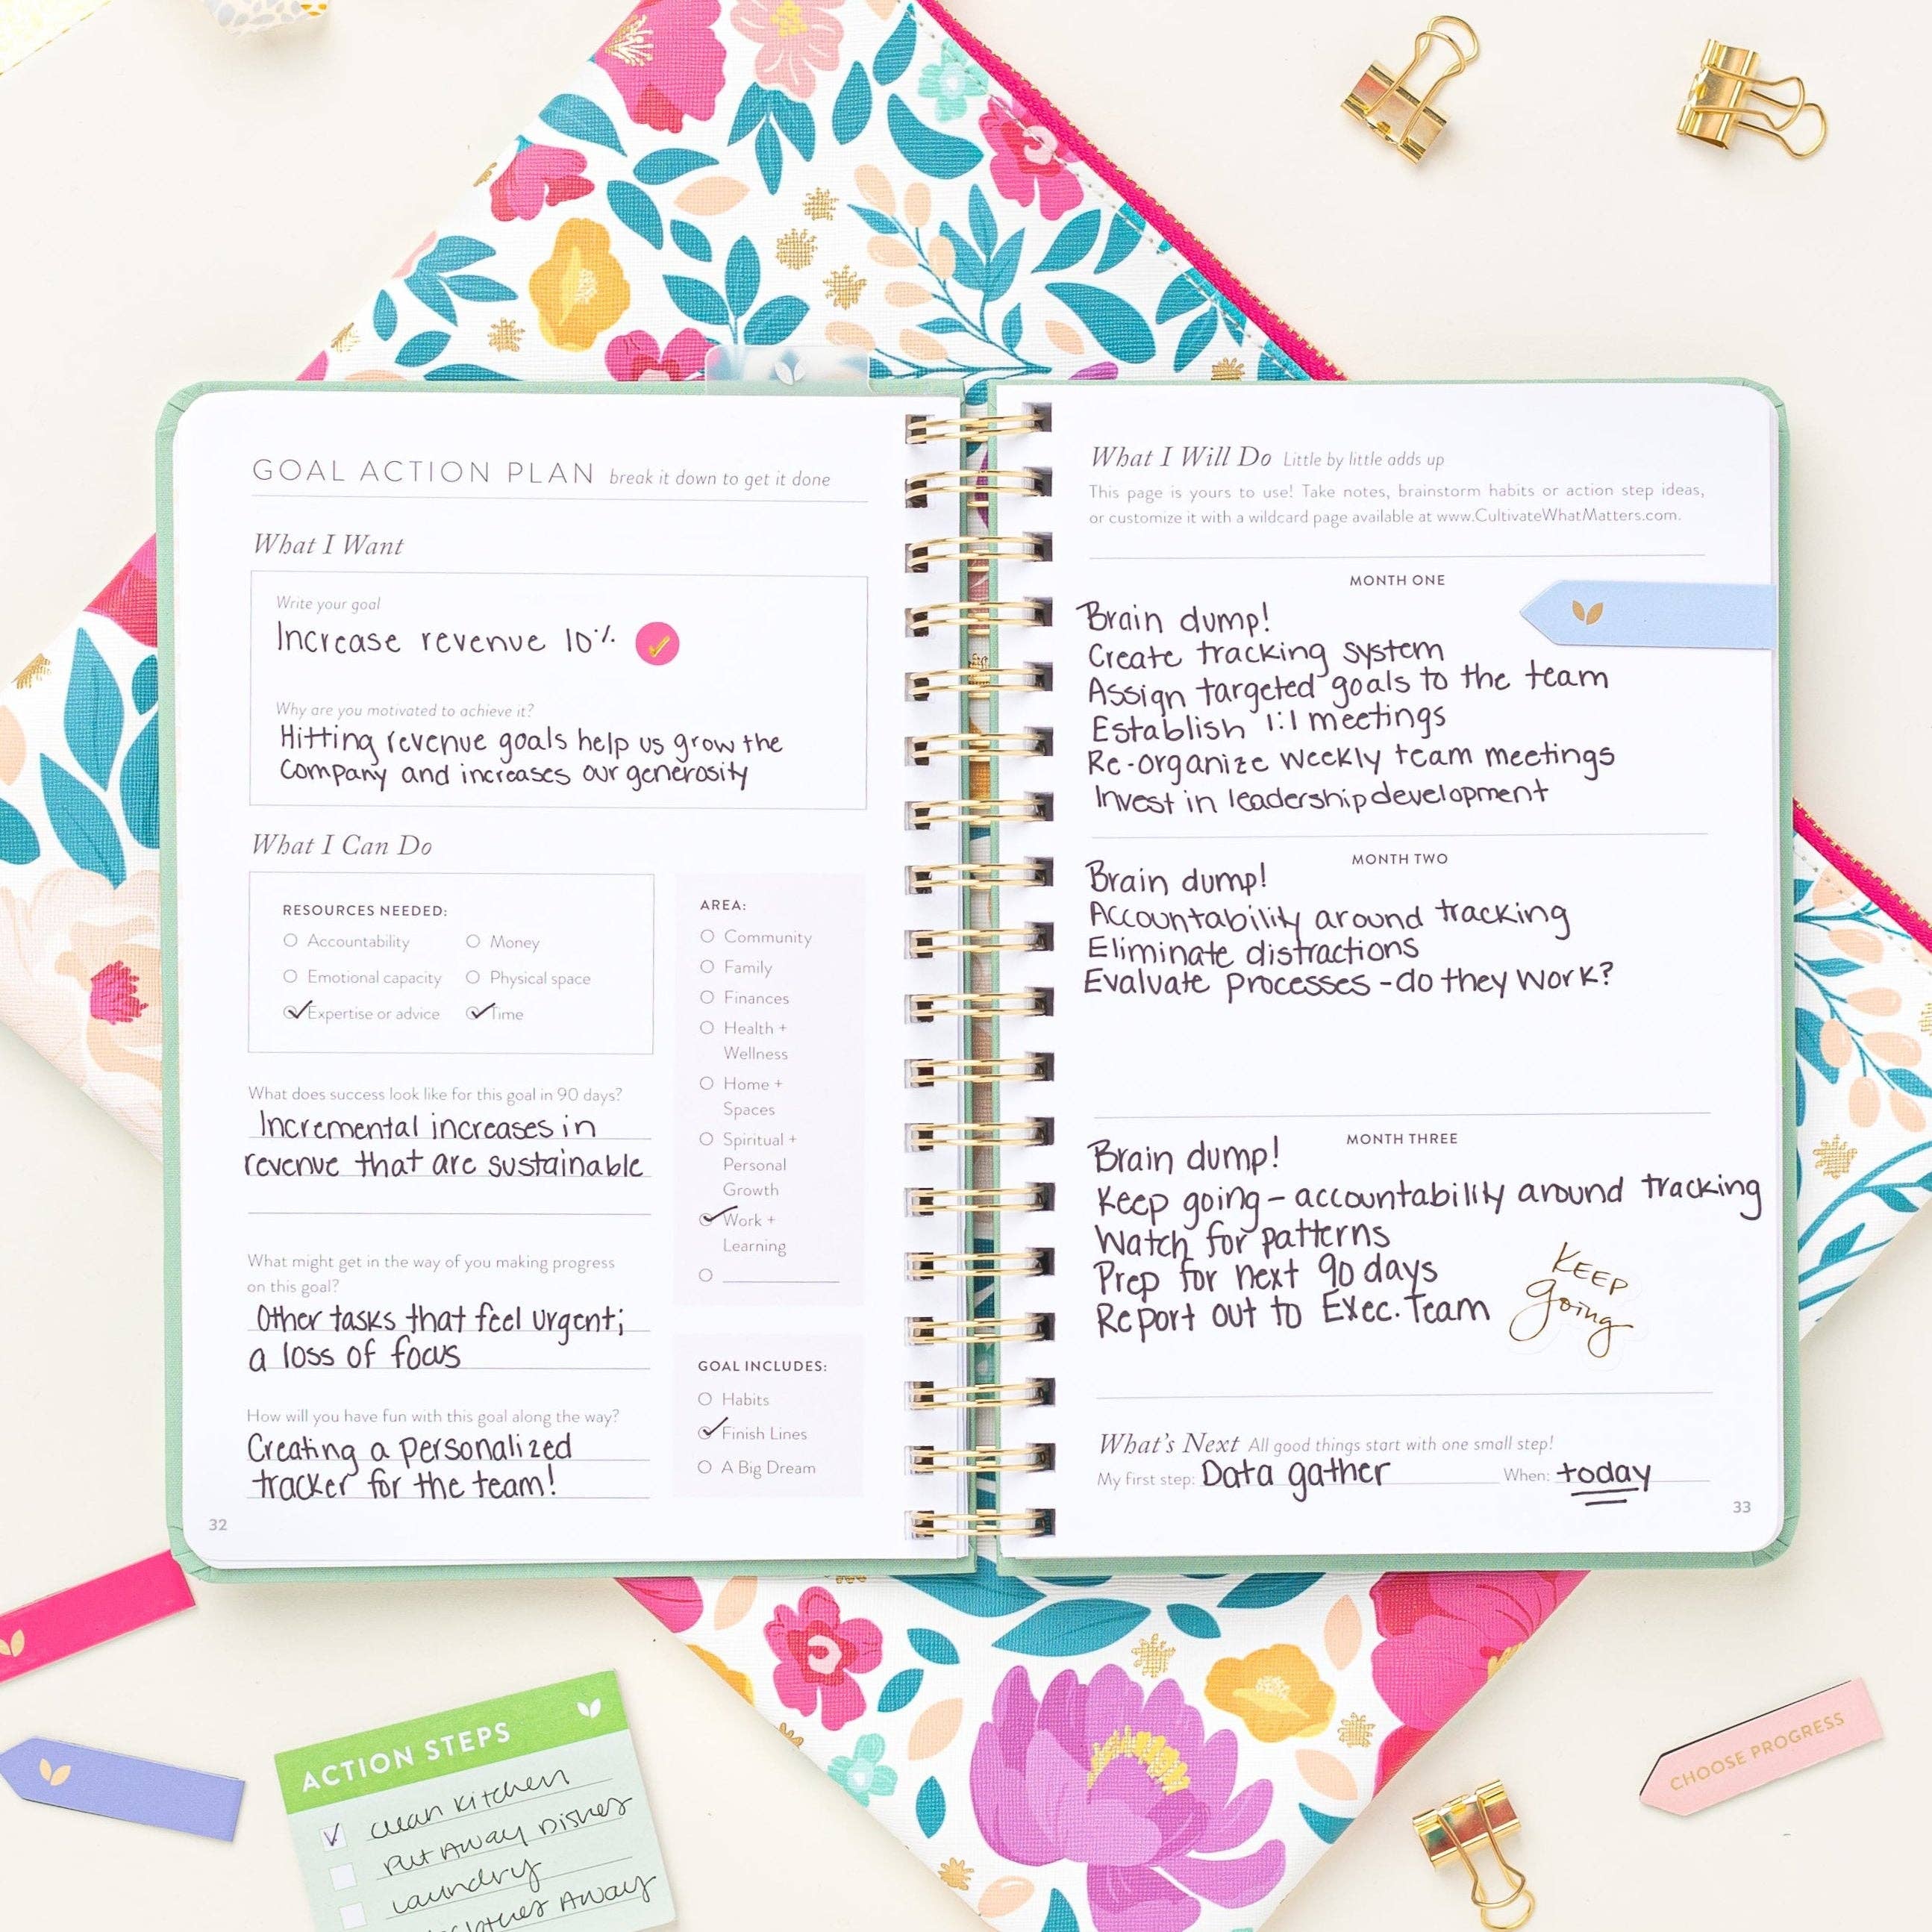 GOAL ACTION PLAN break it down to get it done
What I Want
Write your goal
Increase revenue 10%
Why are you motivated to achieve it?
Hitting revenue goals help us grow the
company and increases our generosity
What I Can Do
RESOURCES NEEDED:
Accountability Money
Emotional capacity Physical space
Expertise or advice Time
What does success look like for this goal in 90 days?
Incremental increases in
revenue that are sustainable
What might get in the way of you making progress
on this goal?
Other tasks that feel urgent;
a loss of focus
How will you have fun with this goal along the way?
Creating a personalized
tracker for the team!
32
AREA:
Community
Family
Finances
Health +
Wellness
Home +
Spaces
Spiritual +
Personal
Growth
Work +
Learning
GOAL INCLUDES:
Habits
Finish Lines
A Big Dream
What I Will Do Little by little adds up
This page is yours to use! Take notes, brainstorm habits or action step ideas,
or customize it with a wildcard page available at www.CultivateWhatMatters.com.
MONTH ONE
Brain dump!
Create tracking system
Assign targeted goals to the team
Establish 1:1 meetings
Re-organize weekly team meetings
Invest in leadership development
MONTH TWO
Brain dump!
Accountability around tracking
Eliminate distractions
Evaluate processes - do they work?
MONTH THREE
Brain dump!
Keep going - accountability around tracking
Watch for patterns
Prep for next 90 days
Report out to Exec. Team
KEEP
going
What's Next All good things start with one small step!
My first step: Data gather When: today
33
ACTION STEPS
clean kitchen
PUT AWAY DISHES
laundry
AWAY
CHOOSE PROGRESS